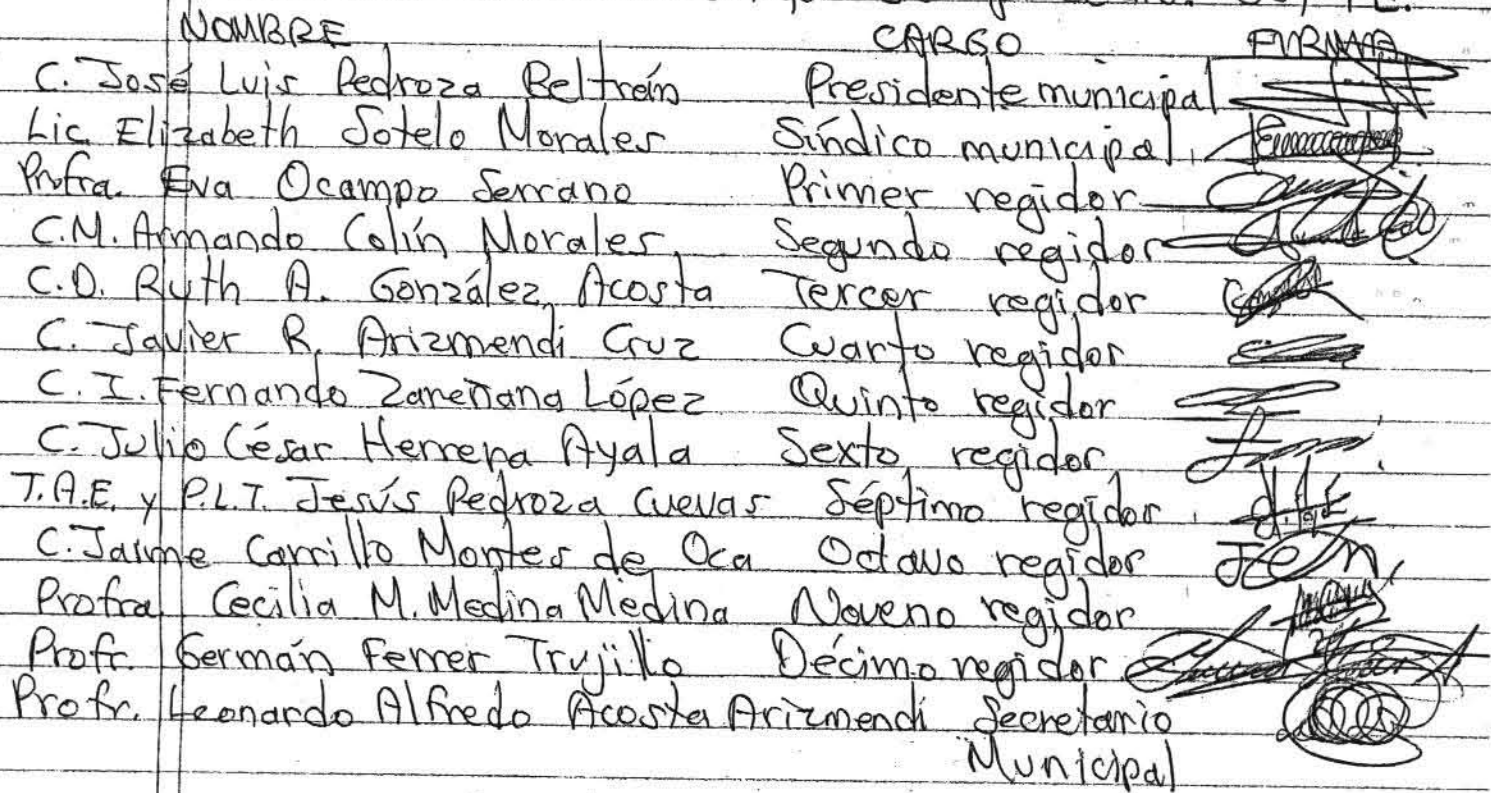 NOMBRE CARGO FIRMA
C. José Luis Pedroza Beltrán Presidente municipal
Lic. Elizabeth Sotelo Morales Síndico municipal.
Profra. Eva Ocampo Serrano Primer regidor
C.M. Armando Colín Morales Segundo regidor
C.D. Ruth A. González Acosta Tercer regidor
C. Javier R. Arizmendi Cruz Cuarto regidor
C. I. Fernando Zareñana López Quinto regidor
C. Julio César Herrera Ayala Sexto regidor
T.A.E. y P.L.T. Jesús Pedroza Cuevas Séptimo regidor.
C. Jaime Carrillo Montes de Oca Octavo regidor
Profra Cecilia M. Medina Medina Noveno regidor
Profr. Germán Ferrer Trujillo Décimo regidor
Profr. Leonardo Alfredo Acosta Arizmendi Secretario
Municipal